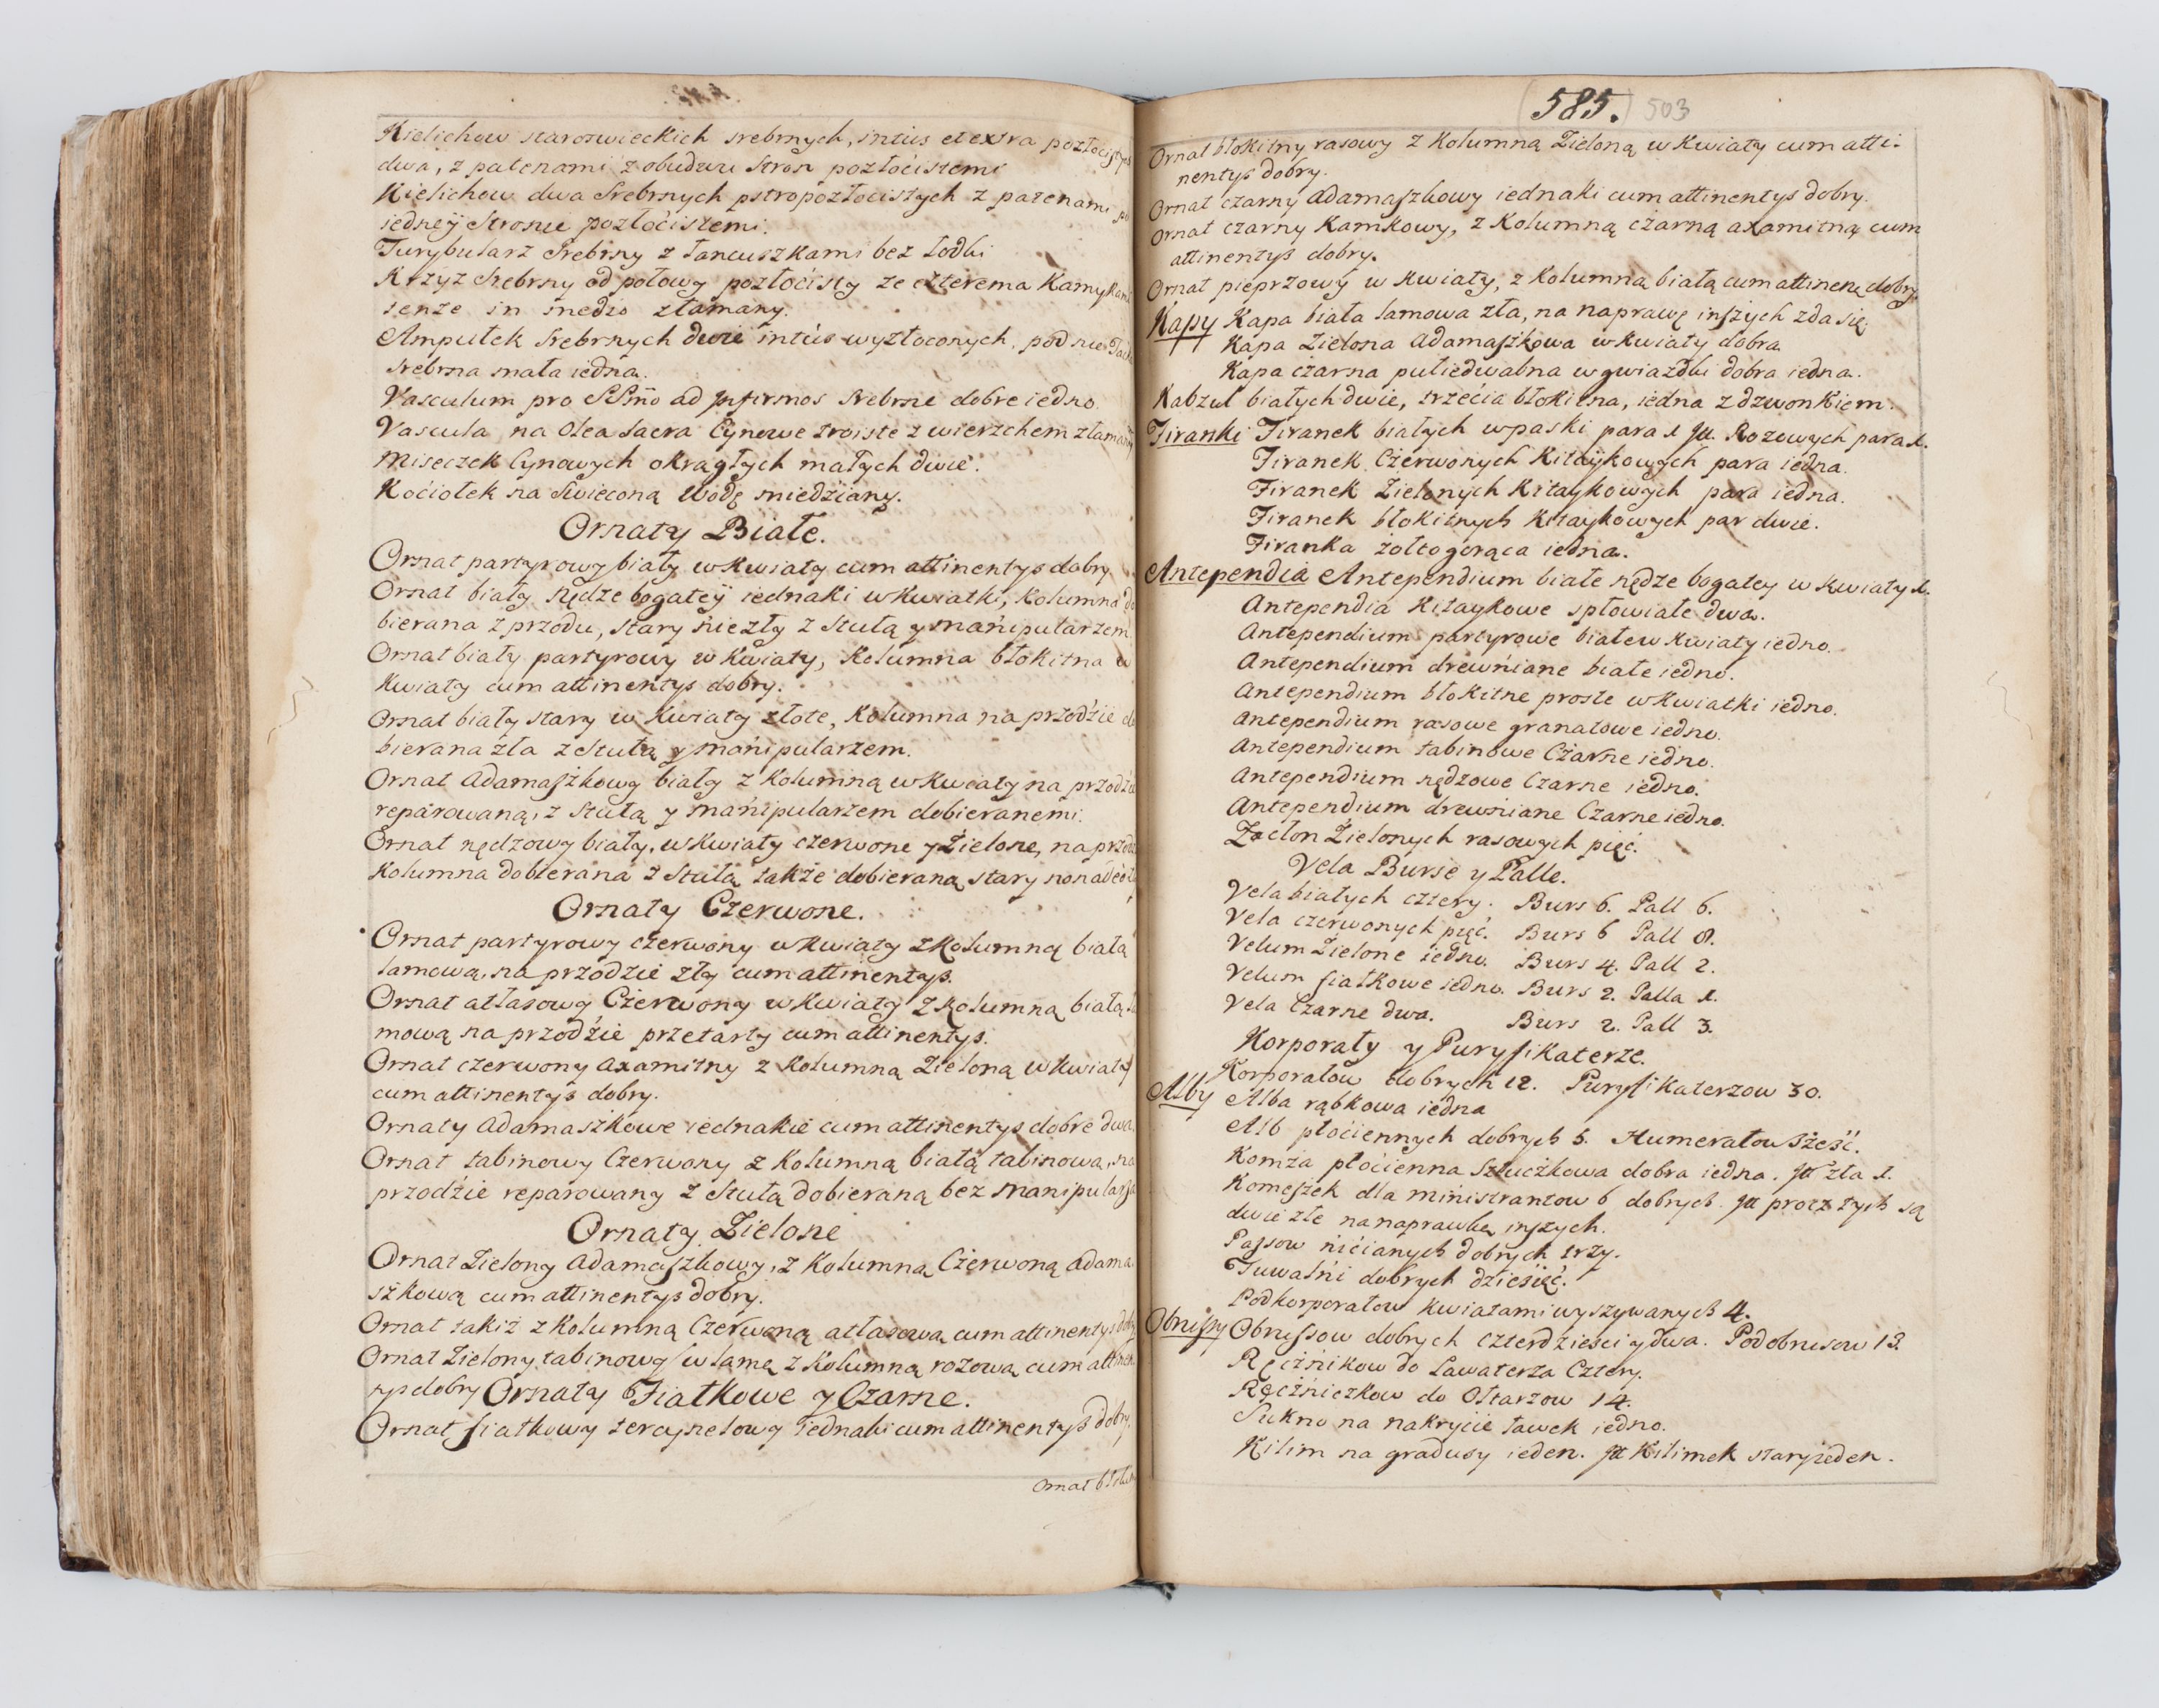 Kielichow staroswieckich srebrnych, intus et extra pozłocistych
dwa, z patenami z obudwu stron pozłócistemi
Kielichow dwa Srebrnych pstropozłocistych z patenami po
iedneÿ stronie pozłócistemi.
Turybularz Srebrny z łancuszkami bez łodki
Krzyz Srebrny od połowy pozłócisty ze czterema Kamykami
tenze in medio złamany.
Ampułek srebrnych dwie intus wyzłoconych, pod nie Tacka
srebrna mała iedna.
Vasculum pro SSmo ad Infirmos srebrne dobre iedno.
Vascula na Olea Sacra Cynowe troiste z wierzchem złamanym
Miseczek Cynowych okrągłych małych dwie.
Kociołek na Swięconą Wodę miedziany.
Ornaty Białe.
Ornat partyrowy biały w kwiaty cum attinentys dobry
Ornat biały rędze bogateÿ iednaki w kwiatki, kolumna do
bierana z przodu, stary niezły z stułą y manipularzem
Ornat biały partyrowy w kwiaty, kolumna błokitna w
kwiaty cum attinentys dobry.
Ornat biały stary w kwiaty złote, kolumna na przodzie do
bierana zła z stułą y manipularzem.
Ornat Adamaszkowy biały z kolumną w kwiaty na przodzie
reparowaną, z stułą y manipularzem dobieranemi.
Ornat rędzowy biały, w kwiaty czerwone y zielone, na przodzie
kolumna dobierana z stułą także dobieraną stary non adeo zły
Ornaty Czerwone.
Ornat partyrowy czerwony w kwiaty z kolumną białą
lamową, na przodzie zły cum attinentys.
Ornat atłasowy Czerwony w kwiaty z kolumną białą la
mową na przodzie przetarty cum attinentys.
Ornat czerwony axamitny z kolumną Zieloną w kwiaty
cum attinentys dobry.
Ornaty Adamaszkowe iednakie cum attinentys dobre dwa.
Ornat tabinowy Czerwony z kolumną białą tabinową, na
przodzie reparowany z stułą dobieraną bez manipularza
Ornaty Zielone
Ornat Zielony Adamaszkowy, z kolumną Czerwoną adama
szkową cum attinentys dobry.
Ornat takiż z kolumną Czerwoną atłasową cum attinentys dobry
Ornat Zielony tabinowy w lamę z kolumną rozową cum attinen
tys dobry Ornaty Fiałkowe y Czarne.
Ornat fiałkowy tercynelowy iednaki cum attinentys dobry.
Ornat błokitny
585. 503
Ornat błokitny rasowy z kolumną Zieloną w kwiaty cum atti-
nentys dobry.
Ornat czarny Adamaszkowy iednaki cum attinentys dobry.
Ornat czarny Kamkowy, z kolumną czarną axamitną cum
attinentys dobry.
Ornat pieprzowy w kwiaty, z kolumną białą cum attinen. dobry
Kapy Kapa biała lamowa zła, na naprawę inszych zda się
Kapa Zielona Adamaszkowa w kwiaty dobra
Kapa czarna puliedwabna w gwiazdki dobra iedna.
Kabzul białych dwie, trzecia błokitna, iedna z dzwonkiem.
Firanki Firanek białych w paski para 1 It. Rozowych para 1.
Firanek Czerwonych Kitaÿkowych para iedna.
Firanek Zielonych Kitaykowych para iedna.
Firanek błokitnych Kitaykowych par dwie.
Firanka zołtogorąca iedna.
Antependia Antependium białe rędze bogatey w kwiaty 1.
Antependia Kitaykowe spłowiałe dwa.
Antependium partyrowe białe w kwiaty iedno.
Antependium drewniane białe iedno.
Antependium błokitne proste w kwiatki iedno.
Antependium rasowe granatowe iedno.
Antependium tabinowe Czarne iedno.
Antependium rędzowe Czarne iedno.
Antependium drewniane Czarne iedno.
Zasłon Zielonych rasowych pięć.
Vela Burse y Palle.
Vela białych cztery. Burs 6. Pall 6.
Vela czerwonych pięć. Burs 6 Pall 8.
Velum Zielone iedno. Burs 4. Pall 2.
Velum fiałkowe iedno. Burs 2. Palla 1.
Vela Czarne dwa. Burs 2. Pall 3.
Korporały y Puryfikaterze.
Korporałow dobrych 12. Puryfikaterzow 30.
Alby Alba rąbkowa iedna
Alb płociennych dobrych 5. Humerałow sześć.
Komza płocienna sztuczkowa dobra iedna. It zła 1.
Komeszek dla ministrantow 6 dobrych. It procz tych są
dwie złe na naprawkę inszych.
Passow nicianych dobrych trzy.
Tuwalni dobrych dziesięć.
Podkorporałow kwiatami wyszywanych 4.
Obrussy Obrussow dobrych czterdziesci y dwa. Podobrusow 13.
Ręcznikow do Lawaterza Cztery.
Ręczniczkow do Ołtarzow 14.
Sukno na nakrycie ławek iedno.
Kilim na gradusy ieden. It Kilimek stary ieden.